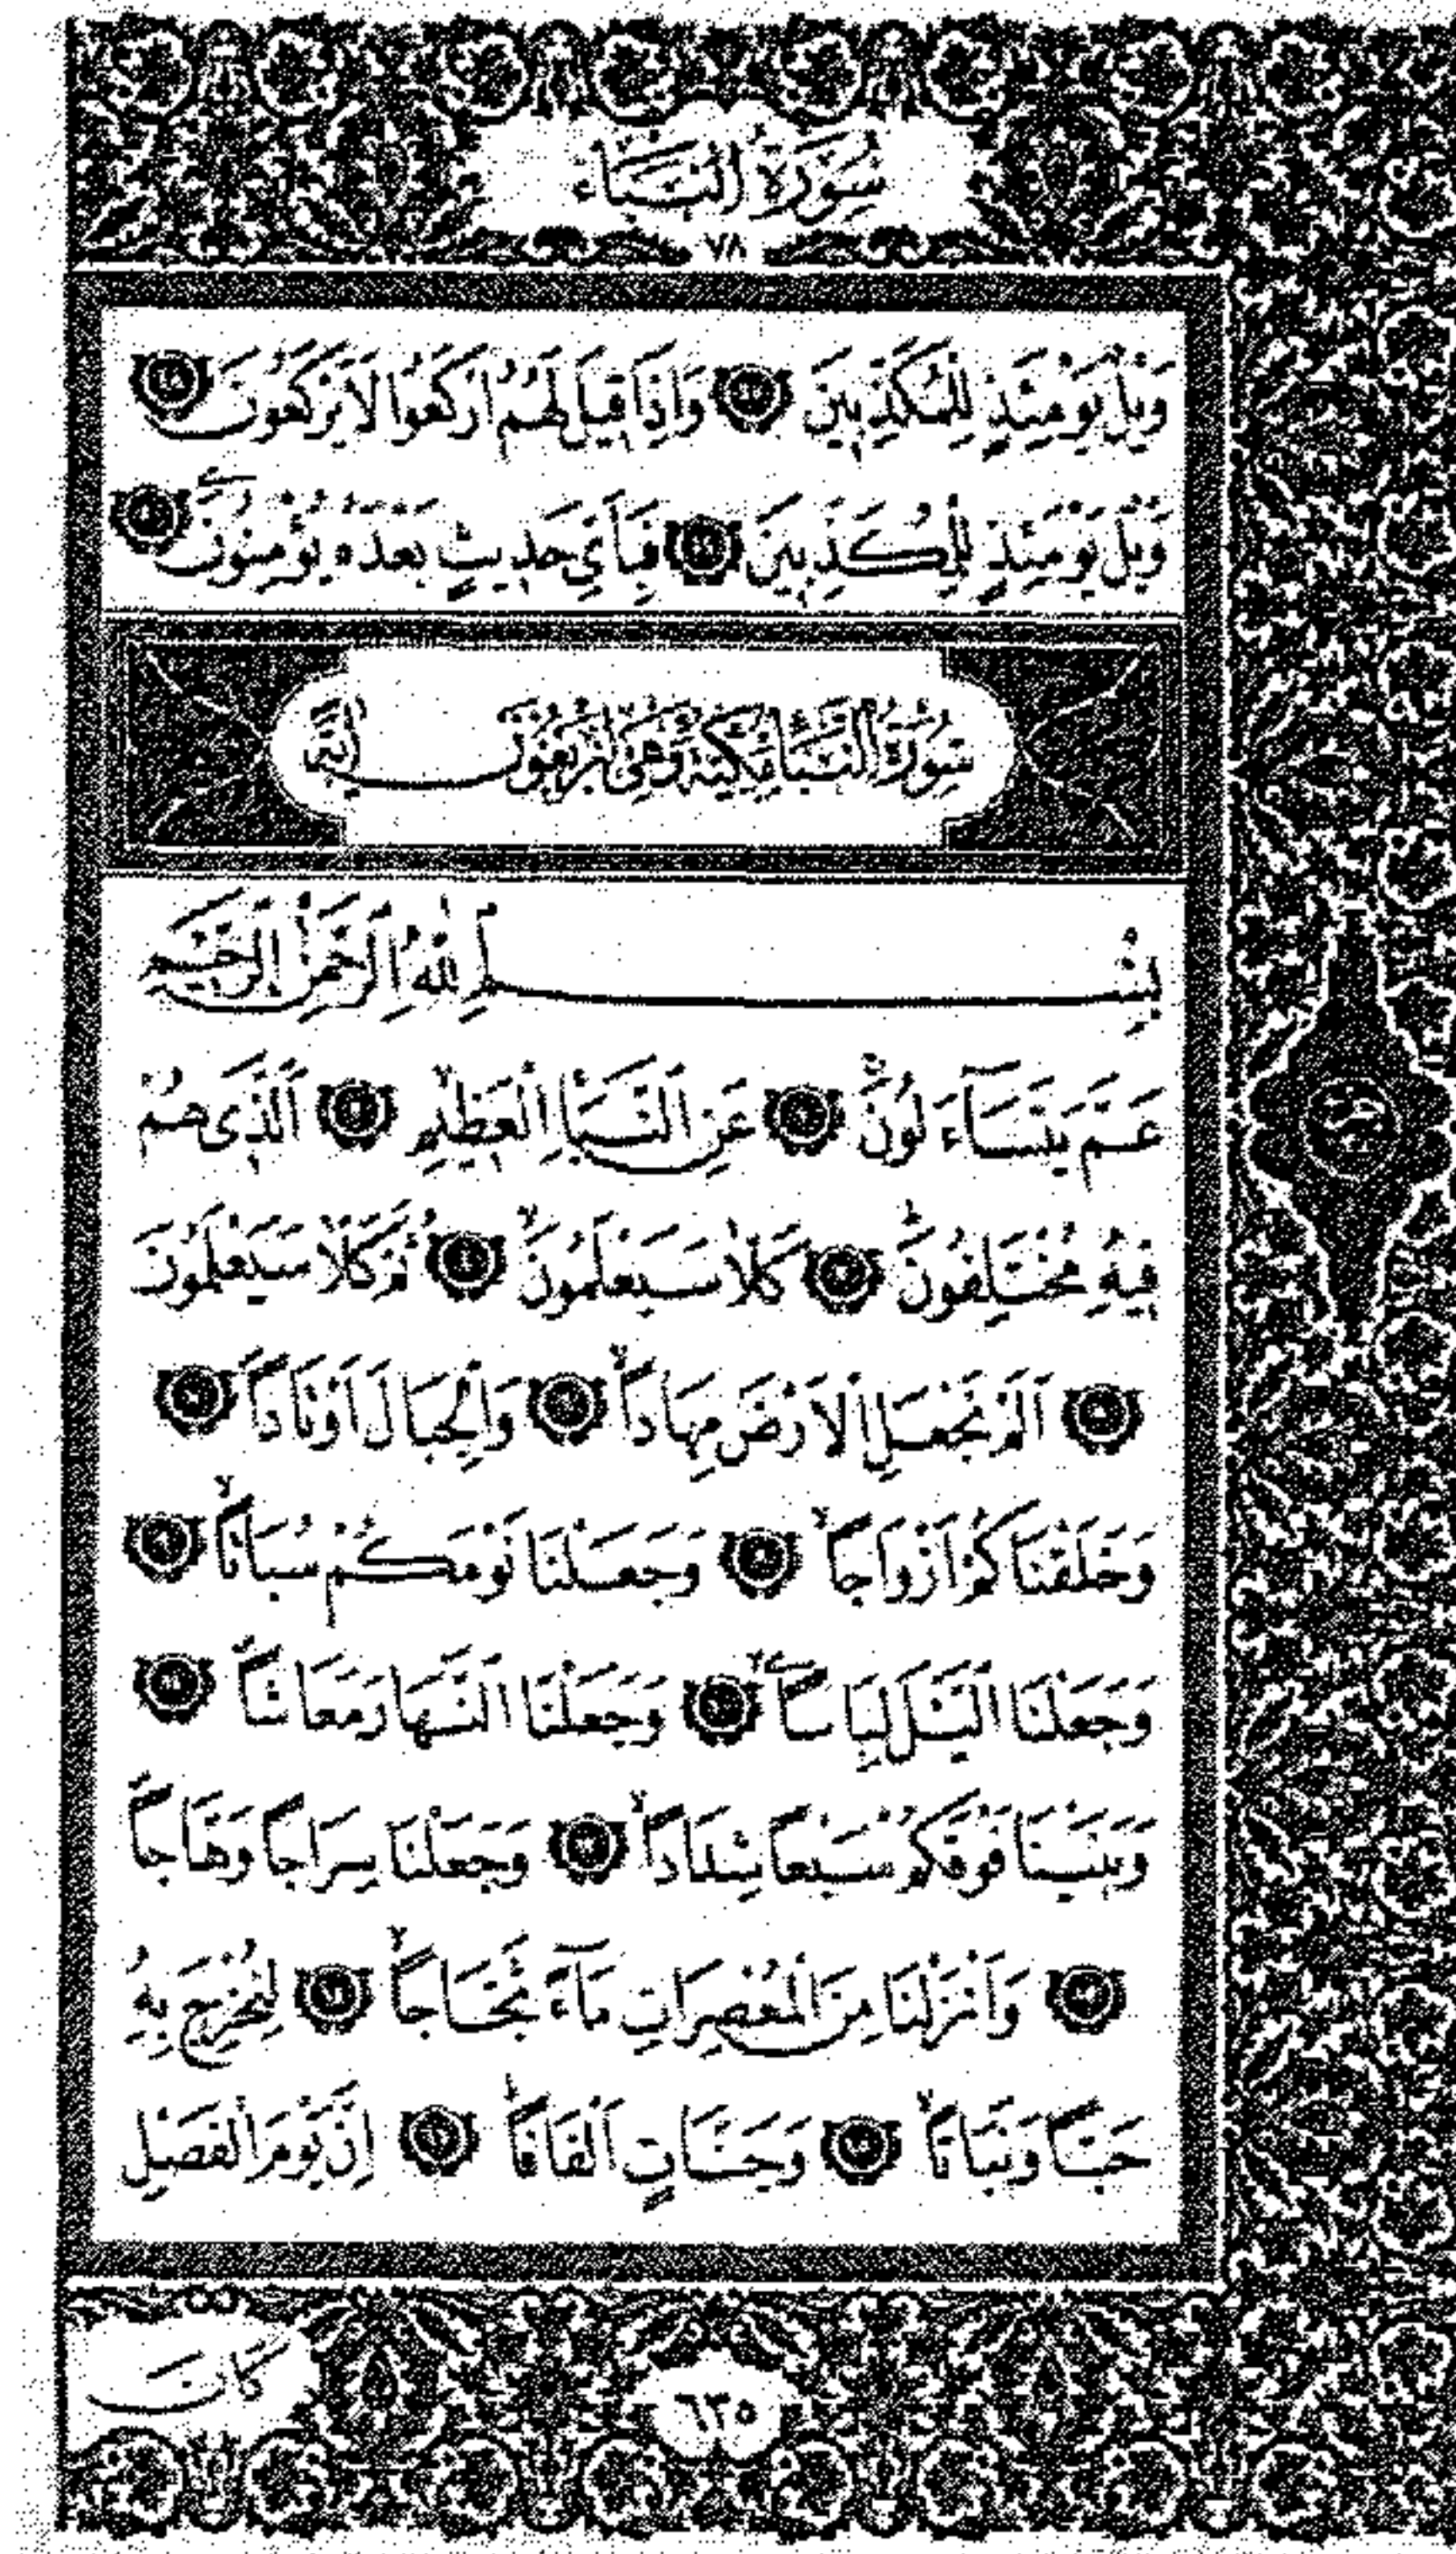 سُورَةُ النَّبَاءِ
٧٨
وَيْلٌ يَوْمَئِذٍ لِلْمُكَذِّبِينَ ﴿٤٧﴾ وَاِذَا قِيلَ لَهُمُ ارْكَعُوا لَا يَرْكَعُونَ ﴿٤٨﴾
وَيْلٌ يَوْمَئِذٍ لِلْمُكَذِّبِينَ ﴿٤٩﴾ فَبِاَىِّ حَدِيثٍ بَعْدَهُ يُؤْمِنُونَ ﴿٥٠﴾
سُورَةُ النَّبَأِ مَكِّيَّةٌ وَهِىَ اَرْبَعُونَ اٰيَةً
بِسْمِ اللّٰهِ الرَّحْمٰنِ الرَّحِيمِ
عَمَّ يَتَسَآءَلُونَ ﴿١﴾ عَنِ النَّبَأِ الْعَظِيمِ ﴿٢﴾ اَلَّذِى هُمْ
فِيهِ مُخْتَلِفُونَ ﴿٣﴾ كَلَّا سَيَعْلَمُونَ ﴿٤﴾ ثُمَّ كَلَّا سَيَعْلَمُونَ
﴿٥﴾ اَلَمْ نَجْعَلِ الْاَرْضَ مِهَادًا ﴿٦﴾ وَالْجِبَالَ اَوْتَادًا ﴿٧﴾
وَخَلَقْنَاكُمْ اَزْوَاجًا ﴿٨﴾ وَجَعَلْنَا نَوْمَكُمْ سُبَاتًا ﴿٩﴾
وَجَعَلْنَا الَّيْلَ لِبَاسًا ﴿١٠﴾ وَجَعَلْنَا النَّهَارَ مَعَاشًا ﴿١١﴾
وَبَنَيْنَا فَوْقَكُمْ سَبْعًا شِدَادًا ﴿١٢﴾ وَجَعَلْنَا سِرَاجًا وَهَّاجًا
﴿١٣﴾ وَاَنْزَلْنَا مِنَ الْمُعْصِرَاتِ مَآءً ثَجَّاجًا ﴿١٤﴾ لِنُخْرِجَ بِهِ
حَبًّا وَنَبَاتًا ﴿١٥﴾ وَجَنَّاتٍ اَلْفَافًا ﴿١٦﴾ اِنَّ يَوْمَ الْفَصْلِ
كَانَ
٦٣٥